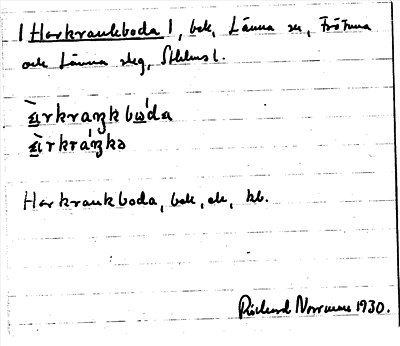 | Harkrankboda |, bek, Länna sn, Frötuna
och Länna skg, Sthlms l.
àrkraŋkbὼda
àrkráŋkə
Harkrankboda, bek, ek, kb.
Rickard Norrman 1930.